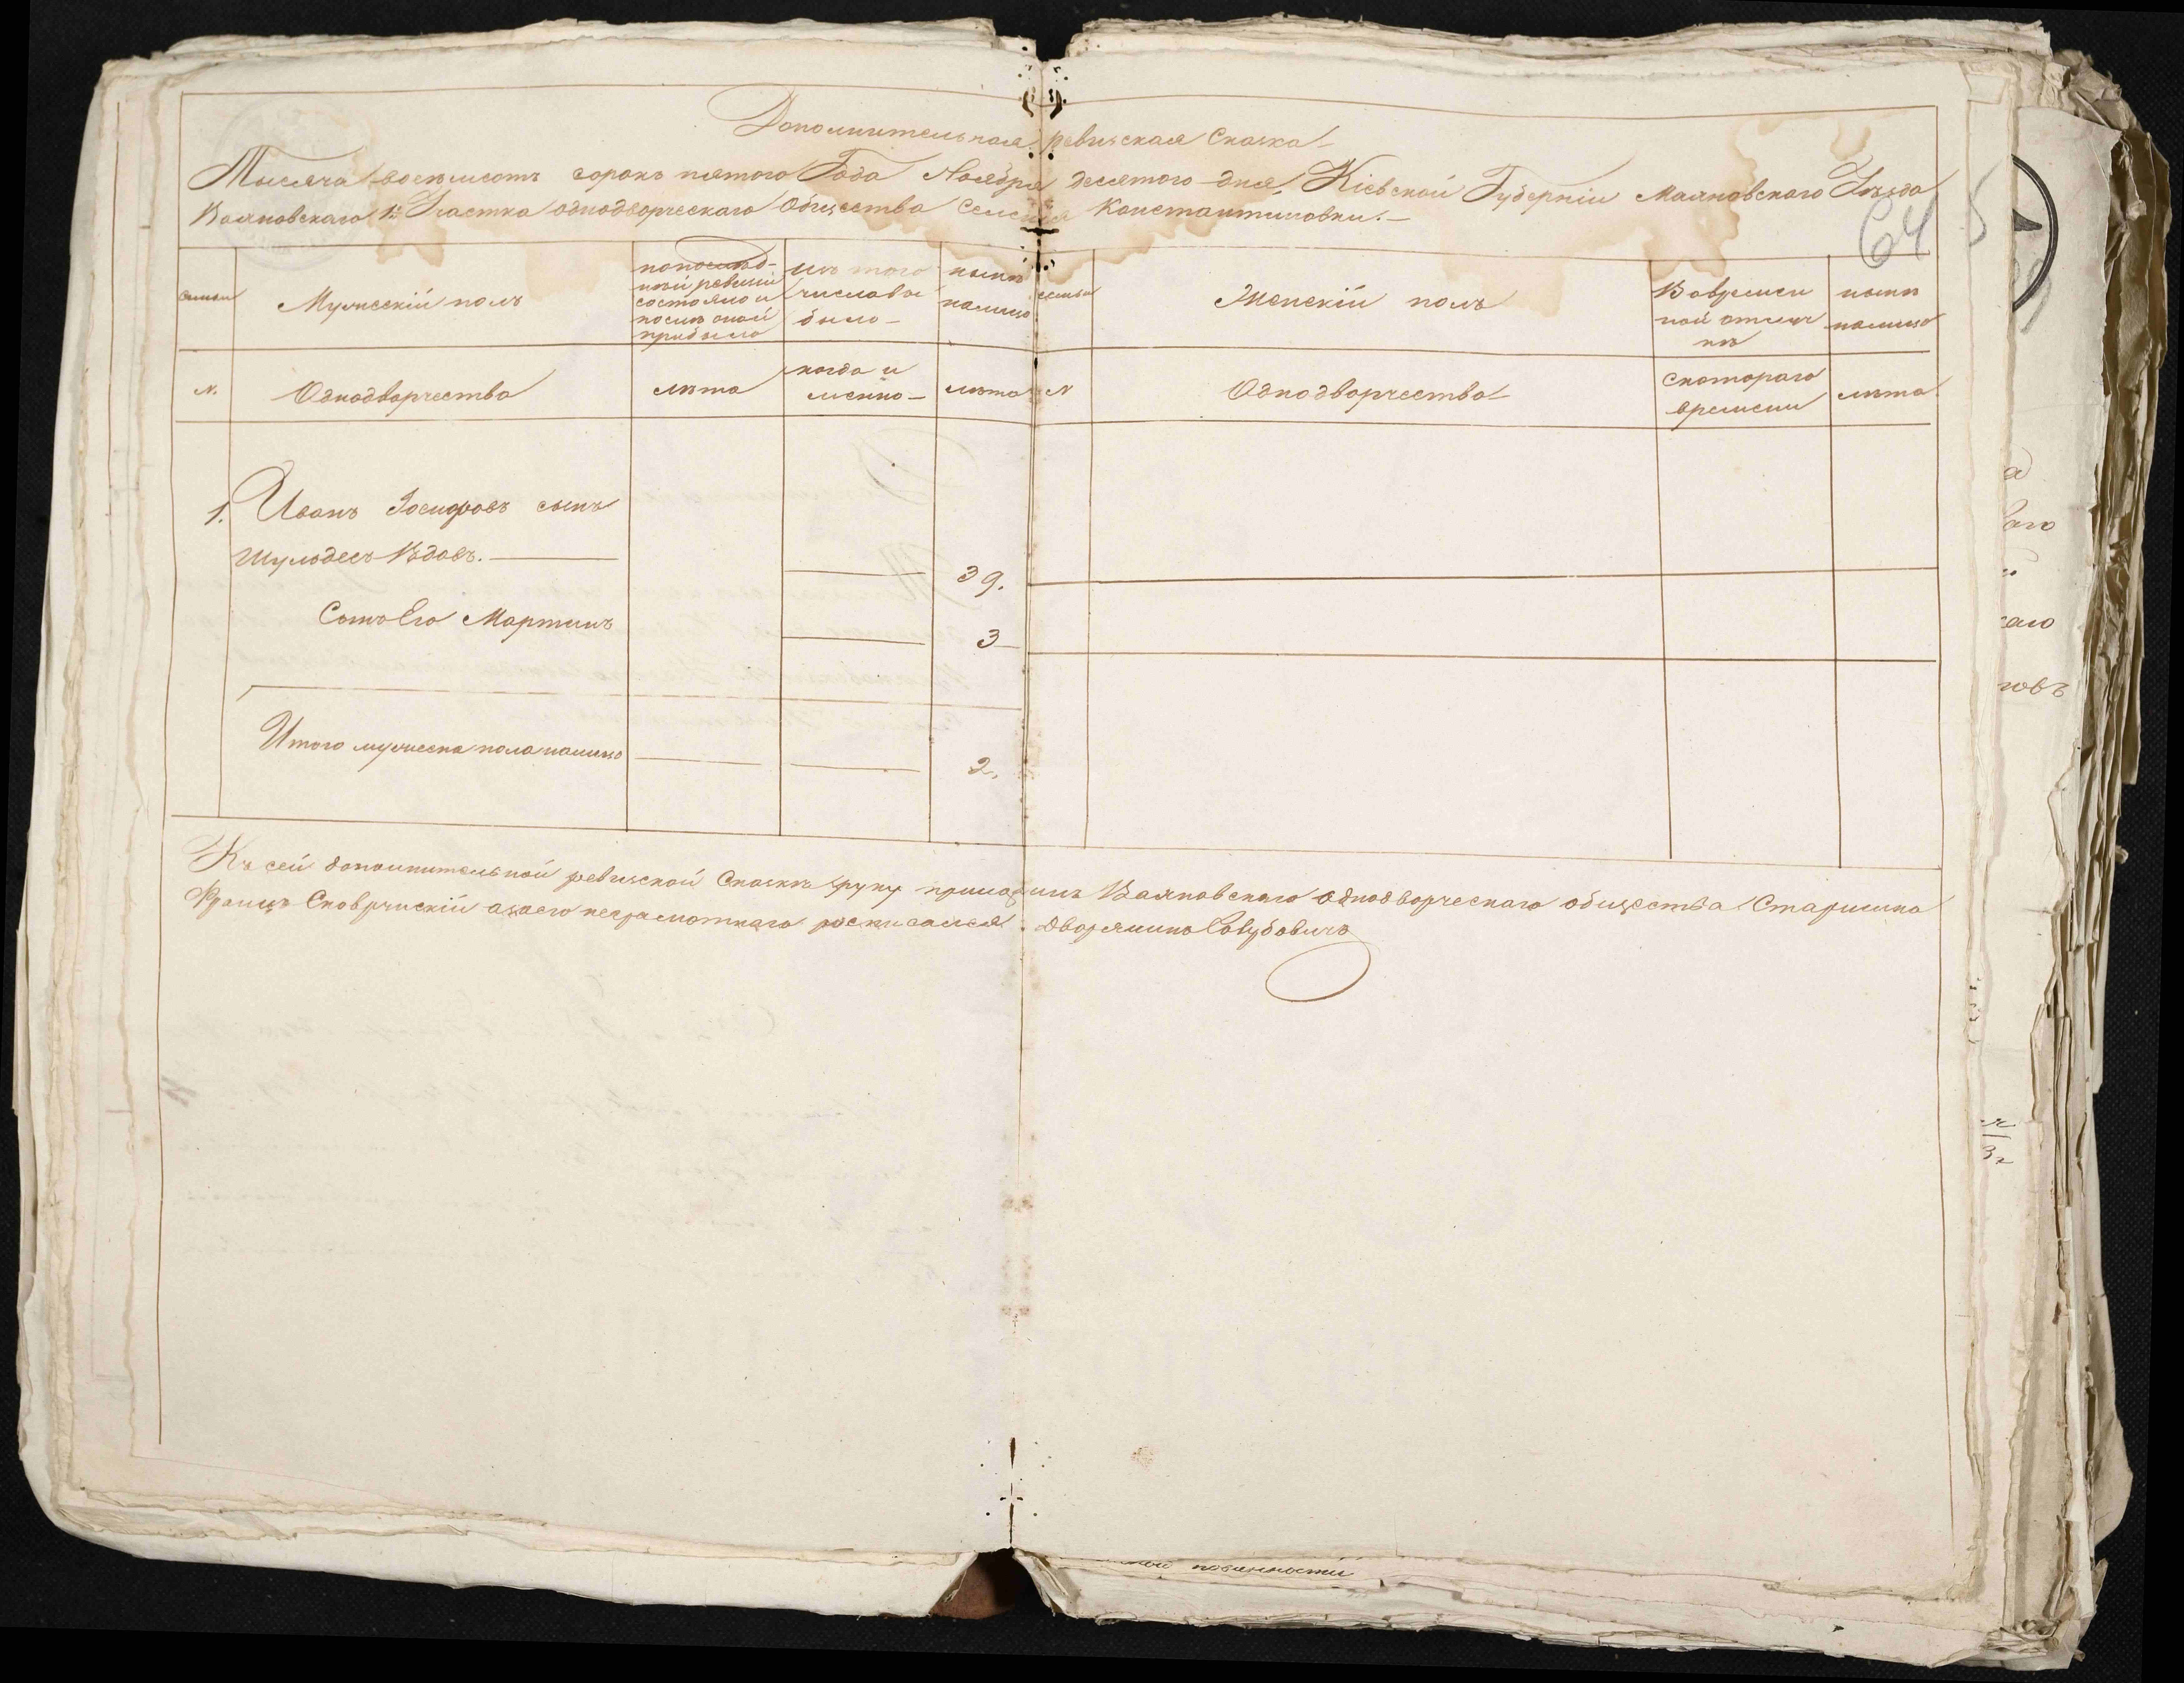 Дополнительная ревизская Сказка
Тысяча восемьсотъ сорокъ пятого Года Ноября десятого дня, Кіевской Губерніи Махновскаго Уѣзда
1го Участка однодворческаго Общества Селенія Константиновки.
64
семьи
Мужескій полъ
по послѣд-
ней ревизіи
состояло и
послѣ оной
прибыло
изъ того
числа вы
было
нынѣ
налицо
семьи
Женскій полъ
Во времен
ной отлуч
кѣ
нынѣ
налицо
N.
Однодворчества
лѣта
когда и
менно
лѣта
N
Однодворчества
с котораго
времени
лѣта
1. Иванъ Іосифовъ сынъ
вдовъ.
39.
Сынъ Его Мартинъ
3
Итого мужеска пола налицо
2.
Къ сей дополнительной ревизской Сказкѣ руку приложилъ однодворческаго общества Старшина
Францъ а за его неграмотнаго росписался дворянинъ
повинности